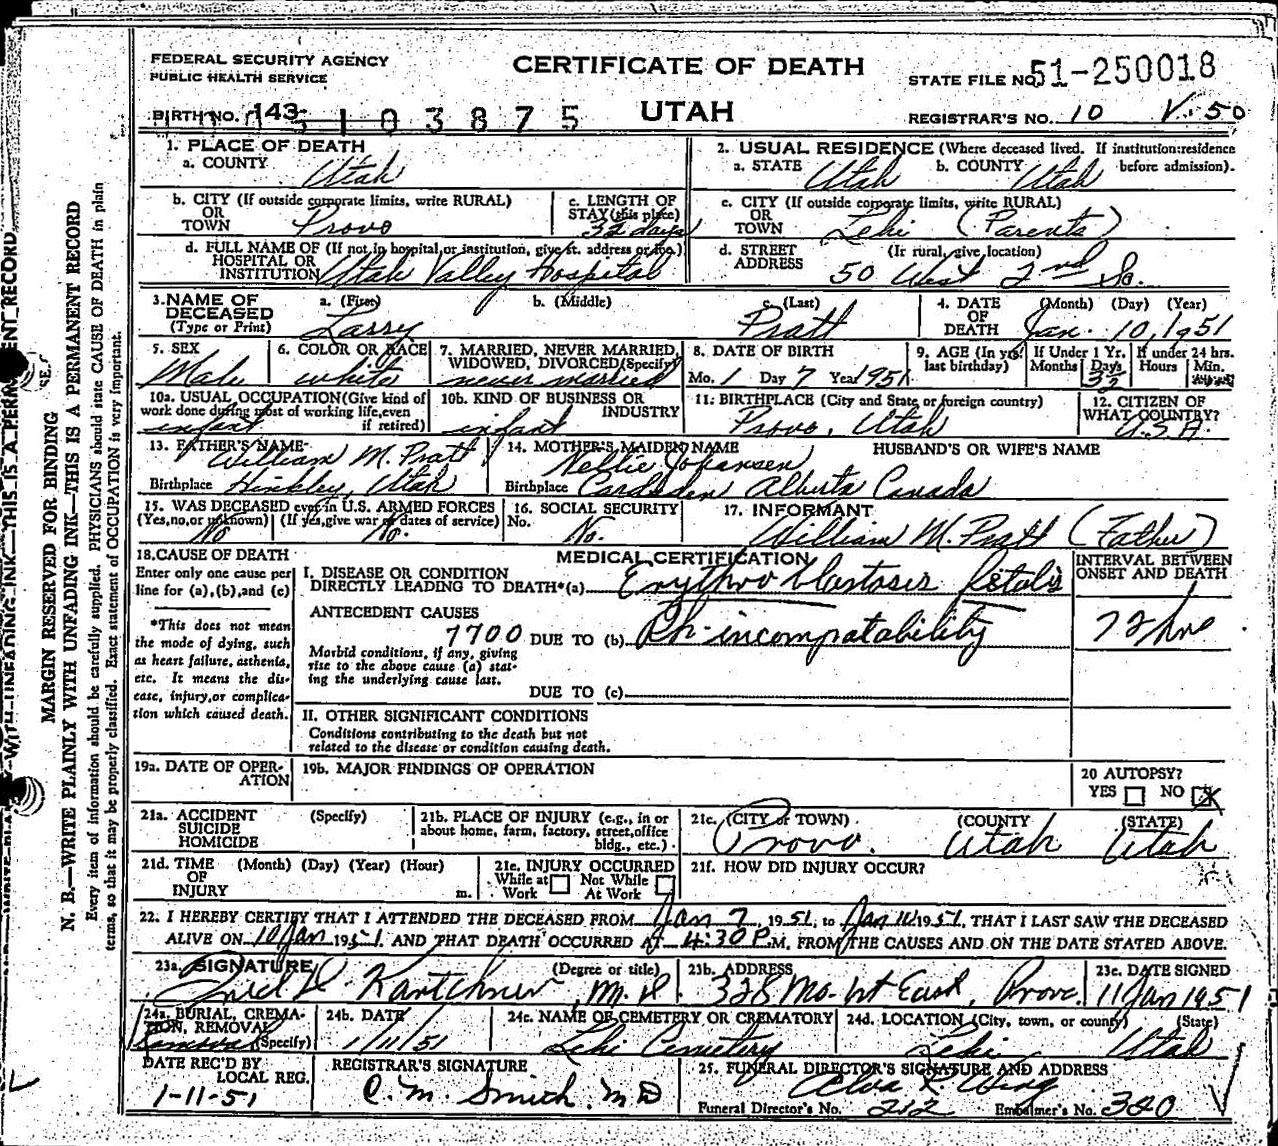 FEDERAL SECURITY AGENCY
PUBLIC HEALTH SERVICE
CERTIFICATE OF DEATH
STATE FILE NO. 51-250018
BIRTH NO. 143- 103875
UTAH
REGISTRAR'S NO. 10 V. 50
1. PLACE OF DEATH
a. COUNTY Utah
2. USUAL RESIDENCE (Where deceased lived. If institution: residence before admission).
a. STATE Utah b. COUNTY Utah
b. CITY (If outside corporate limits, write RURAL) OR TOWN Provo
c. LENGTH OF STAY (this place) 3½ days
c. CITY (If outside corporate limits, write RURAL) OR TOWN Lehi (Parents)
d. FULL NAME OF (If not in hospital or institution, give st. address or loc.) HOSPITAL OR INSTITUTION Utah Valley Hospital
d. STREET ADDRESS (If rural, give location) 50 West 2nd So.
3. NAME OF DECEASED (Type or Print)
a. (First) Larry b. (Middle) c. (Last) Pratt
4. DATE OF DEATH (Month) (Day) (Year) Jan. 10, 1951
5. SEX Male
6. COLOR OR RACE white
7. MARRIED, NEVER MARRIED, WIDOWED, DIVORCED (Specify) never married
8. DATE OF BIRTH Mo. 1 Day 7 Year 1951
9. AGE (In yrs. last birthday) If Under 1 Yr. Months Days 3½ If under 24 hrs. Hours Min.
10a. USUAL OCCUPATION (Give kind of work done during most of working life, even if retired) infant
10b. KIND OF BUSINESS OR INDUSTRY infant
11. BIRTHPLACE (City and State or foreign country) Provo, Utah
12. CITIZEN OF WHAT COUNTRY? U.S.A.
13. FATHER'S NAME William M. Pratt
Birthplace Hinkley, Utah
14. MOTHER'S MAIDEN NAME Nellie Johansen
Birthplace Alberta Canada
HUSBAND'S OR WIFE'S NAME
15. WAS DECEASED ever in U.S. ARMED FORCES
(Yes, no, or unknown) No (If yes, give war or dates of service) No.
16. SOCIAL SECURITY No. No.
17. INFORMANT William M. Pratt (Father)
18. CAUSE OF DEATH
Enter only one cause per line for (a), (b), and (c)
*This does not mean the mode of dying, such as heart failure, asthenia, etc. It means the disease, injury, or complication which caused death.
MEDICAL CERTIFICATION
I. DISEASE OR CONDITION DIRECTLY LEADING TO DEATH* (a) Erythro blastosis fetalis
ANTECEDENT CAUSES
7700 DUE TO (b) Rh-incompatability
Morbid conditions, if any, giving rise to the above cause (a) stating the underlying cause last.
DUE TO (c)
INTERVAL BETWEEN ONSET AND DEATH
72 hrs
II. OTHER SIGNIFICANT CONDITIONS
Conditions contributing to the death but not related to the disease or condition causing death.
19a. DATE OF OPERATION
19b. MAJOR FINDINGS OF OPERATION
20 AUTOPSY?
YES NO X
21a. ACCIDENT SUICIDE HOMICIDE (Specify)
21b. PLACE OF INJURY (e.g., in or about home, farm, factory, street, office bldg., etc.)
21c. (CITY or TOWN) (COUNTY) (STATE)
Provo. Utah Utah
21d. TIME OF INJURY (Month) (Day) (Year) (Hour) m.
21e. INJURY OCCURRED While at Work Not While At Work
21f. HOW DID INJURY OCCUR?
22. I HEREBY CERTIFY THAT I ATTENDED THE DECEASED FROM Jan 7, 1951, to Jan 10 1951, THAT I LAST SAW THE DECEASED
ALIVE ON 10 Jan 1951 AND THAT DEATH OCCURRED AT 4:30 P.M. FROM THE CAUSES AND ON THE DATE STATED ABOVE.
23a. SIGNATURE (Degree or title) Kartchner, M.D.
23b. ADDRESS 328 No. 1st East, Provo.
23c. DATE SIGNED 11 Jan 1951
24a. BURIAL, CREMATION, REMOVAL (Specify) Removal
24b. DATE 1/11/51
24c. NAME OF CEMETERY OR CREMATORY Lehi Cemetery
24d. LOCATION (City, town, or county) (State) Lehi Utah
DATE REC'D BY LOCAL REG. 1-11-51
REGISTRAR'S SIGNATURE C. M. Smith. MD
25. FUNERAL DIRECTOR'S SIGNATURE AND ADDRESS
Funeral Director's No. 212 Embalmer's No. 340
MARGIN RESERVED FOR BINDING
N. B.—WRITE PLAINLY WITH UNFADING INK—THIS IS A PERMANENT RECORD
Every item of information should be carefully supplied. PHYSICIANS should state CAUSE OF DEATH in plain
terms, so that it may be properly classified. Exact statement of OCCUPATION is very important.